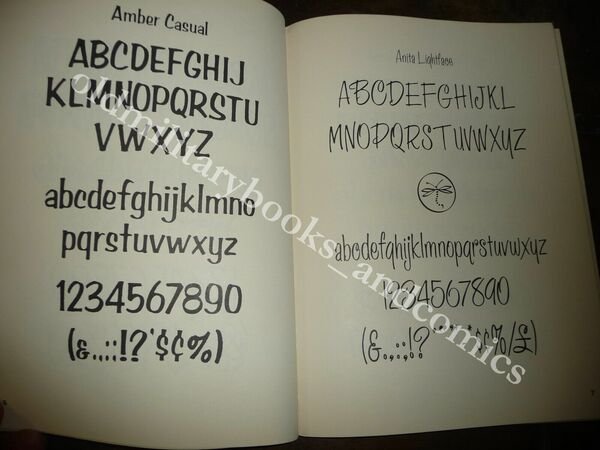 Amber Casual
ABCDEFGHIJ
KLMNOPQRSTU
VWXYZ
abcdefghijklmno
pqrstuvwxyz
1234567890
(&.,:;!?'$¢%)
Anita Lightface
ABCDEFGHIJKL
MNOPQRSTUVWXYZ
abcdefghijklmnopqrstuvwxyz
1234567890
7
oldmilitarybooks_andcomics